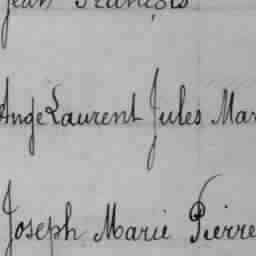 Jean François
Ange Laurent Jules Mar
Joseph Marie Pierre